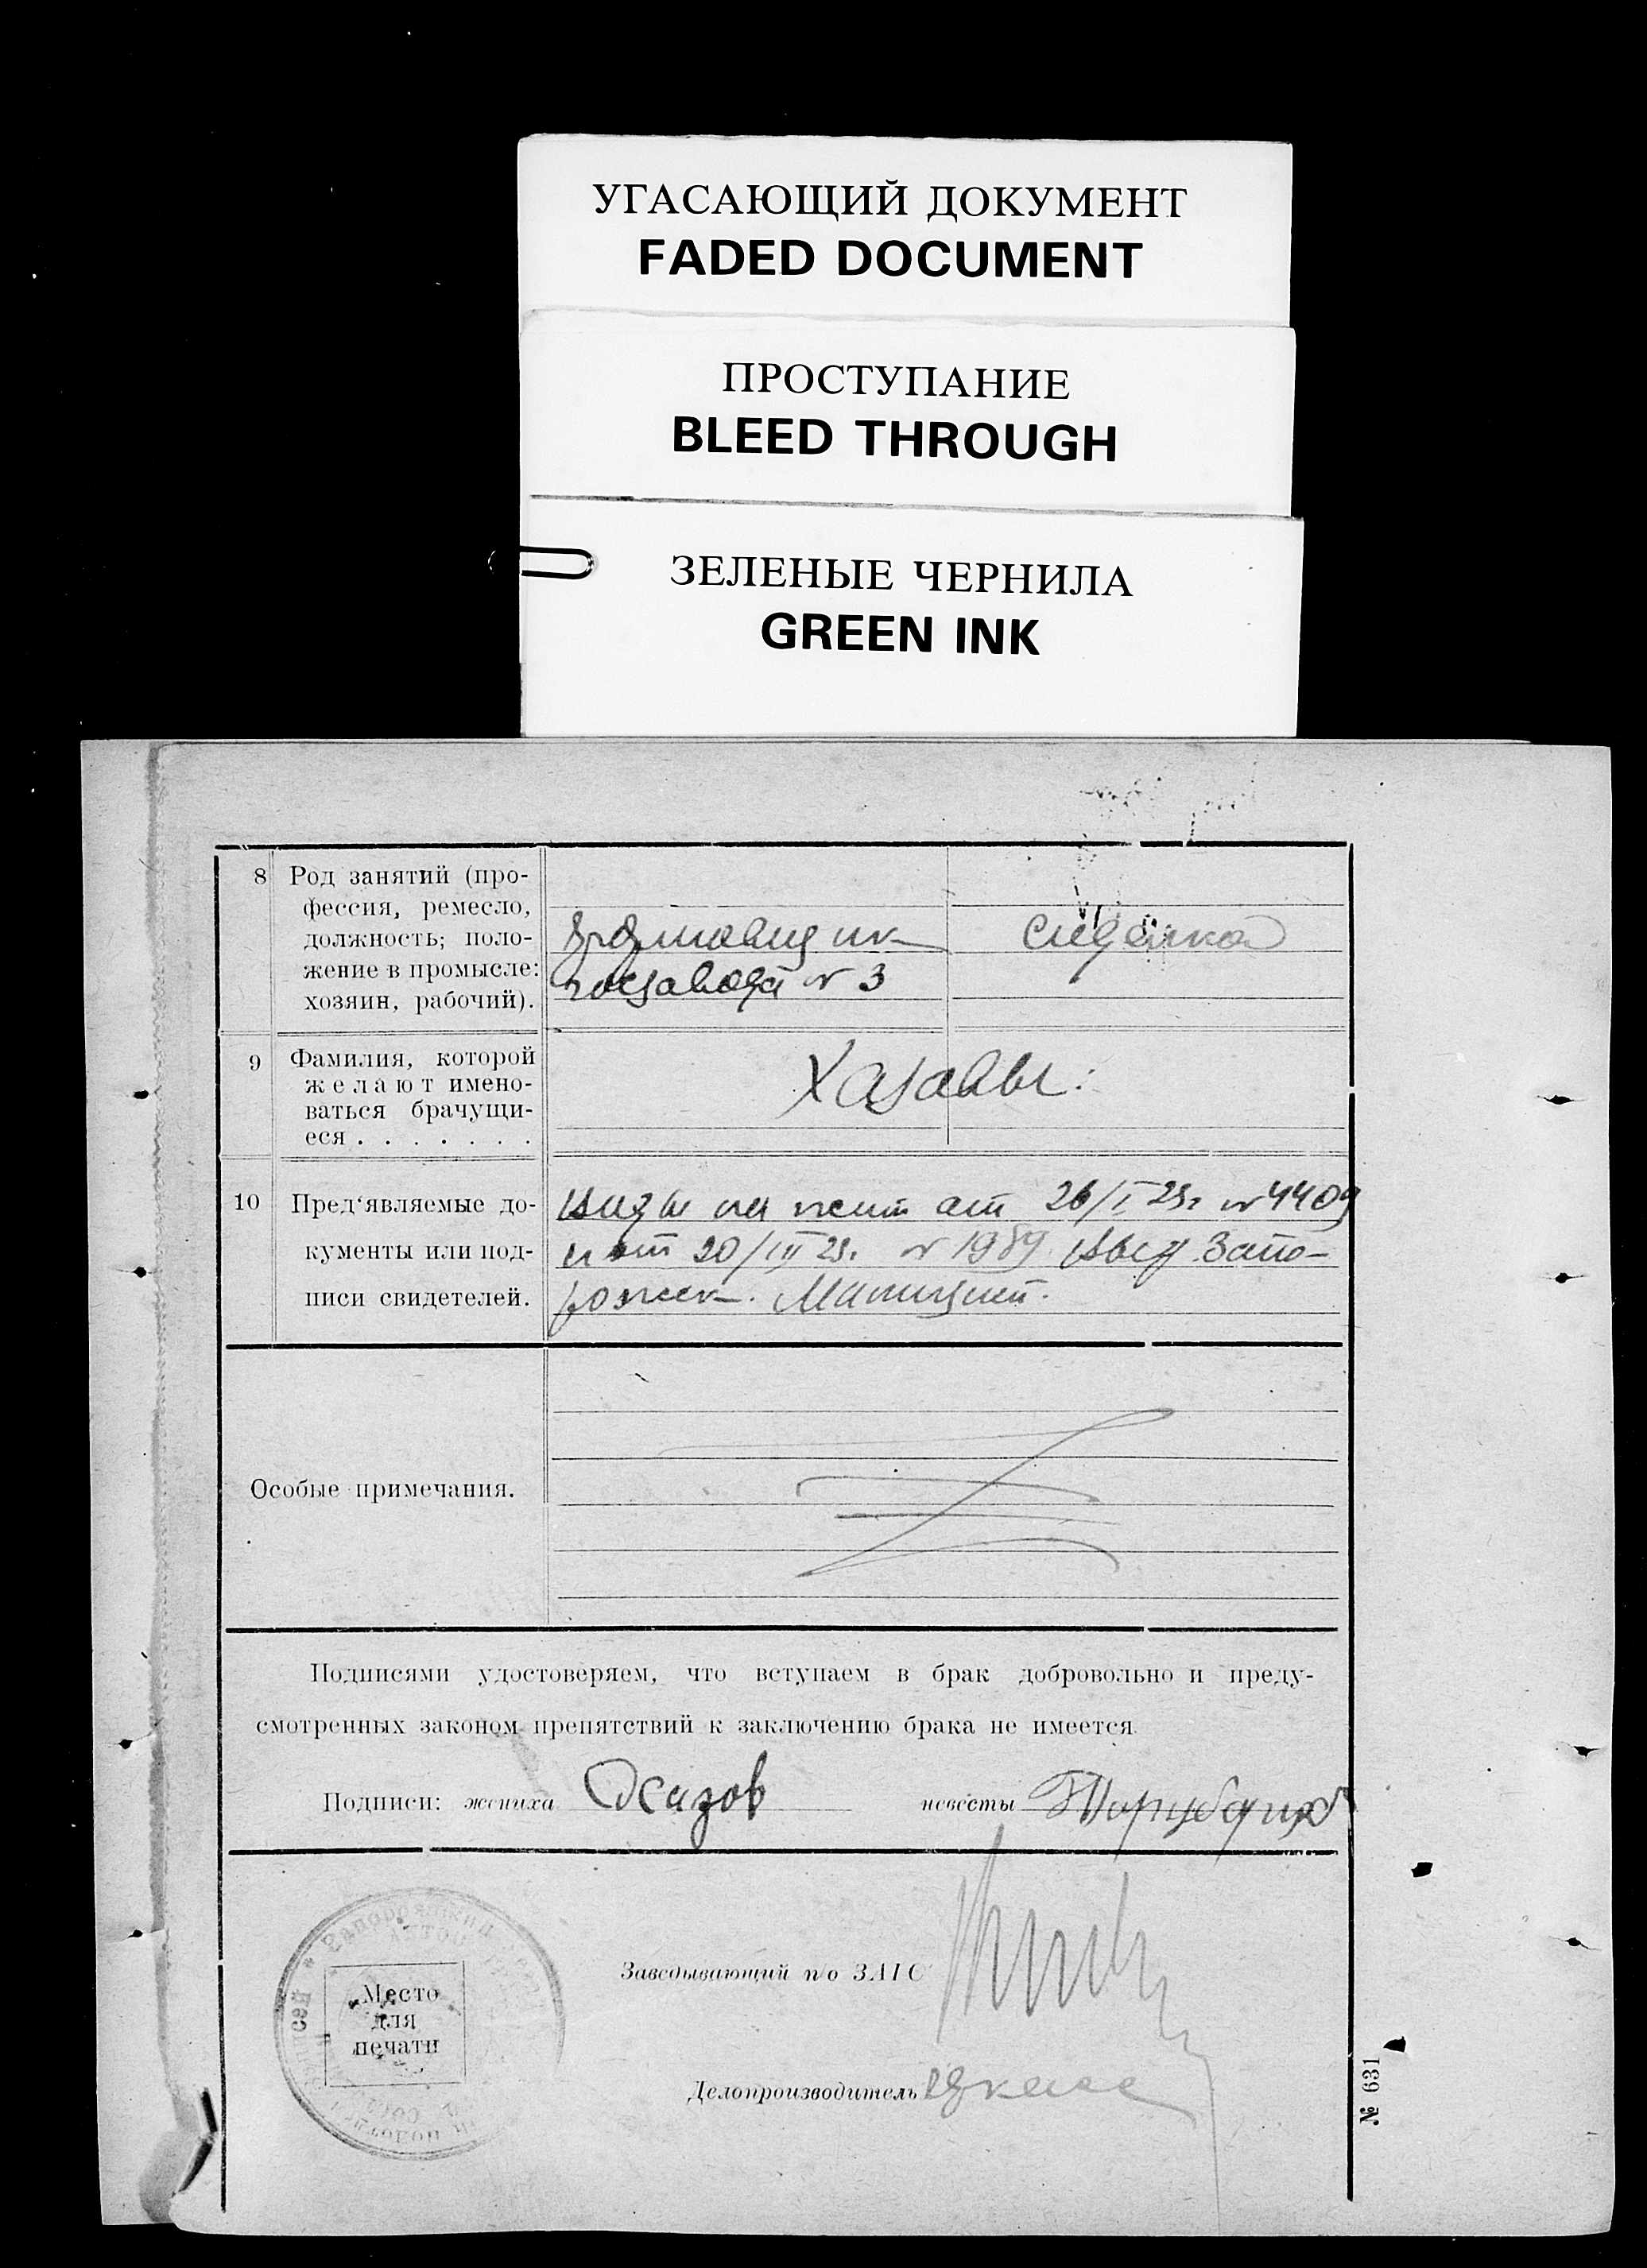 УГАСАЮЩИЙ ДОКУМЕНТ
FADED DOCUMENT
ПРОСТУПАНИЕ
BLEED THROUGH
ЗЕЛЕНЫЕ ЧЕРНИЛА
GREEN INK
8 Род занятий (про-
фессия, ремесло,
должность; поло-
жение в промысле:
хозяин, рабочий).
госзавода № 3
сиделка
9 Фамилия, которой
желают имено-
ваться брачущи-
еся . . . . . . .
Хазавы.
10 Пред‘являемые до-
кументы или под-
писи свидетелей.
визы на жит от 26/I 23г № 4409
и от 20/III 23г. № 1989 выд Запо-
рожск. Милицией.
Особые примечания.
Подписями удостоверяем, что вступаем в брак добровольно и преду-
смотренных законом препятствий к заключению брака не имеется.
Подписи: жениха Хазов невесты
Заведывающий п/о ЗАГС
Место
для
печати
Делопроизводитель
№ 631